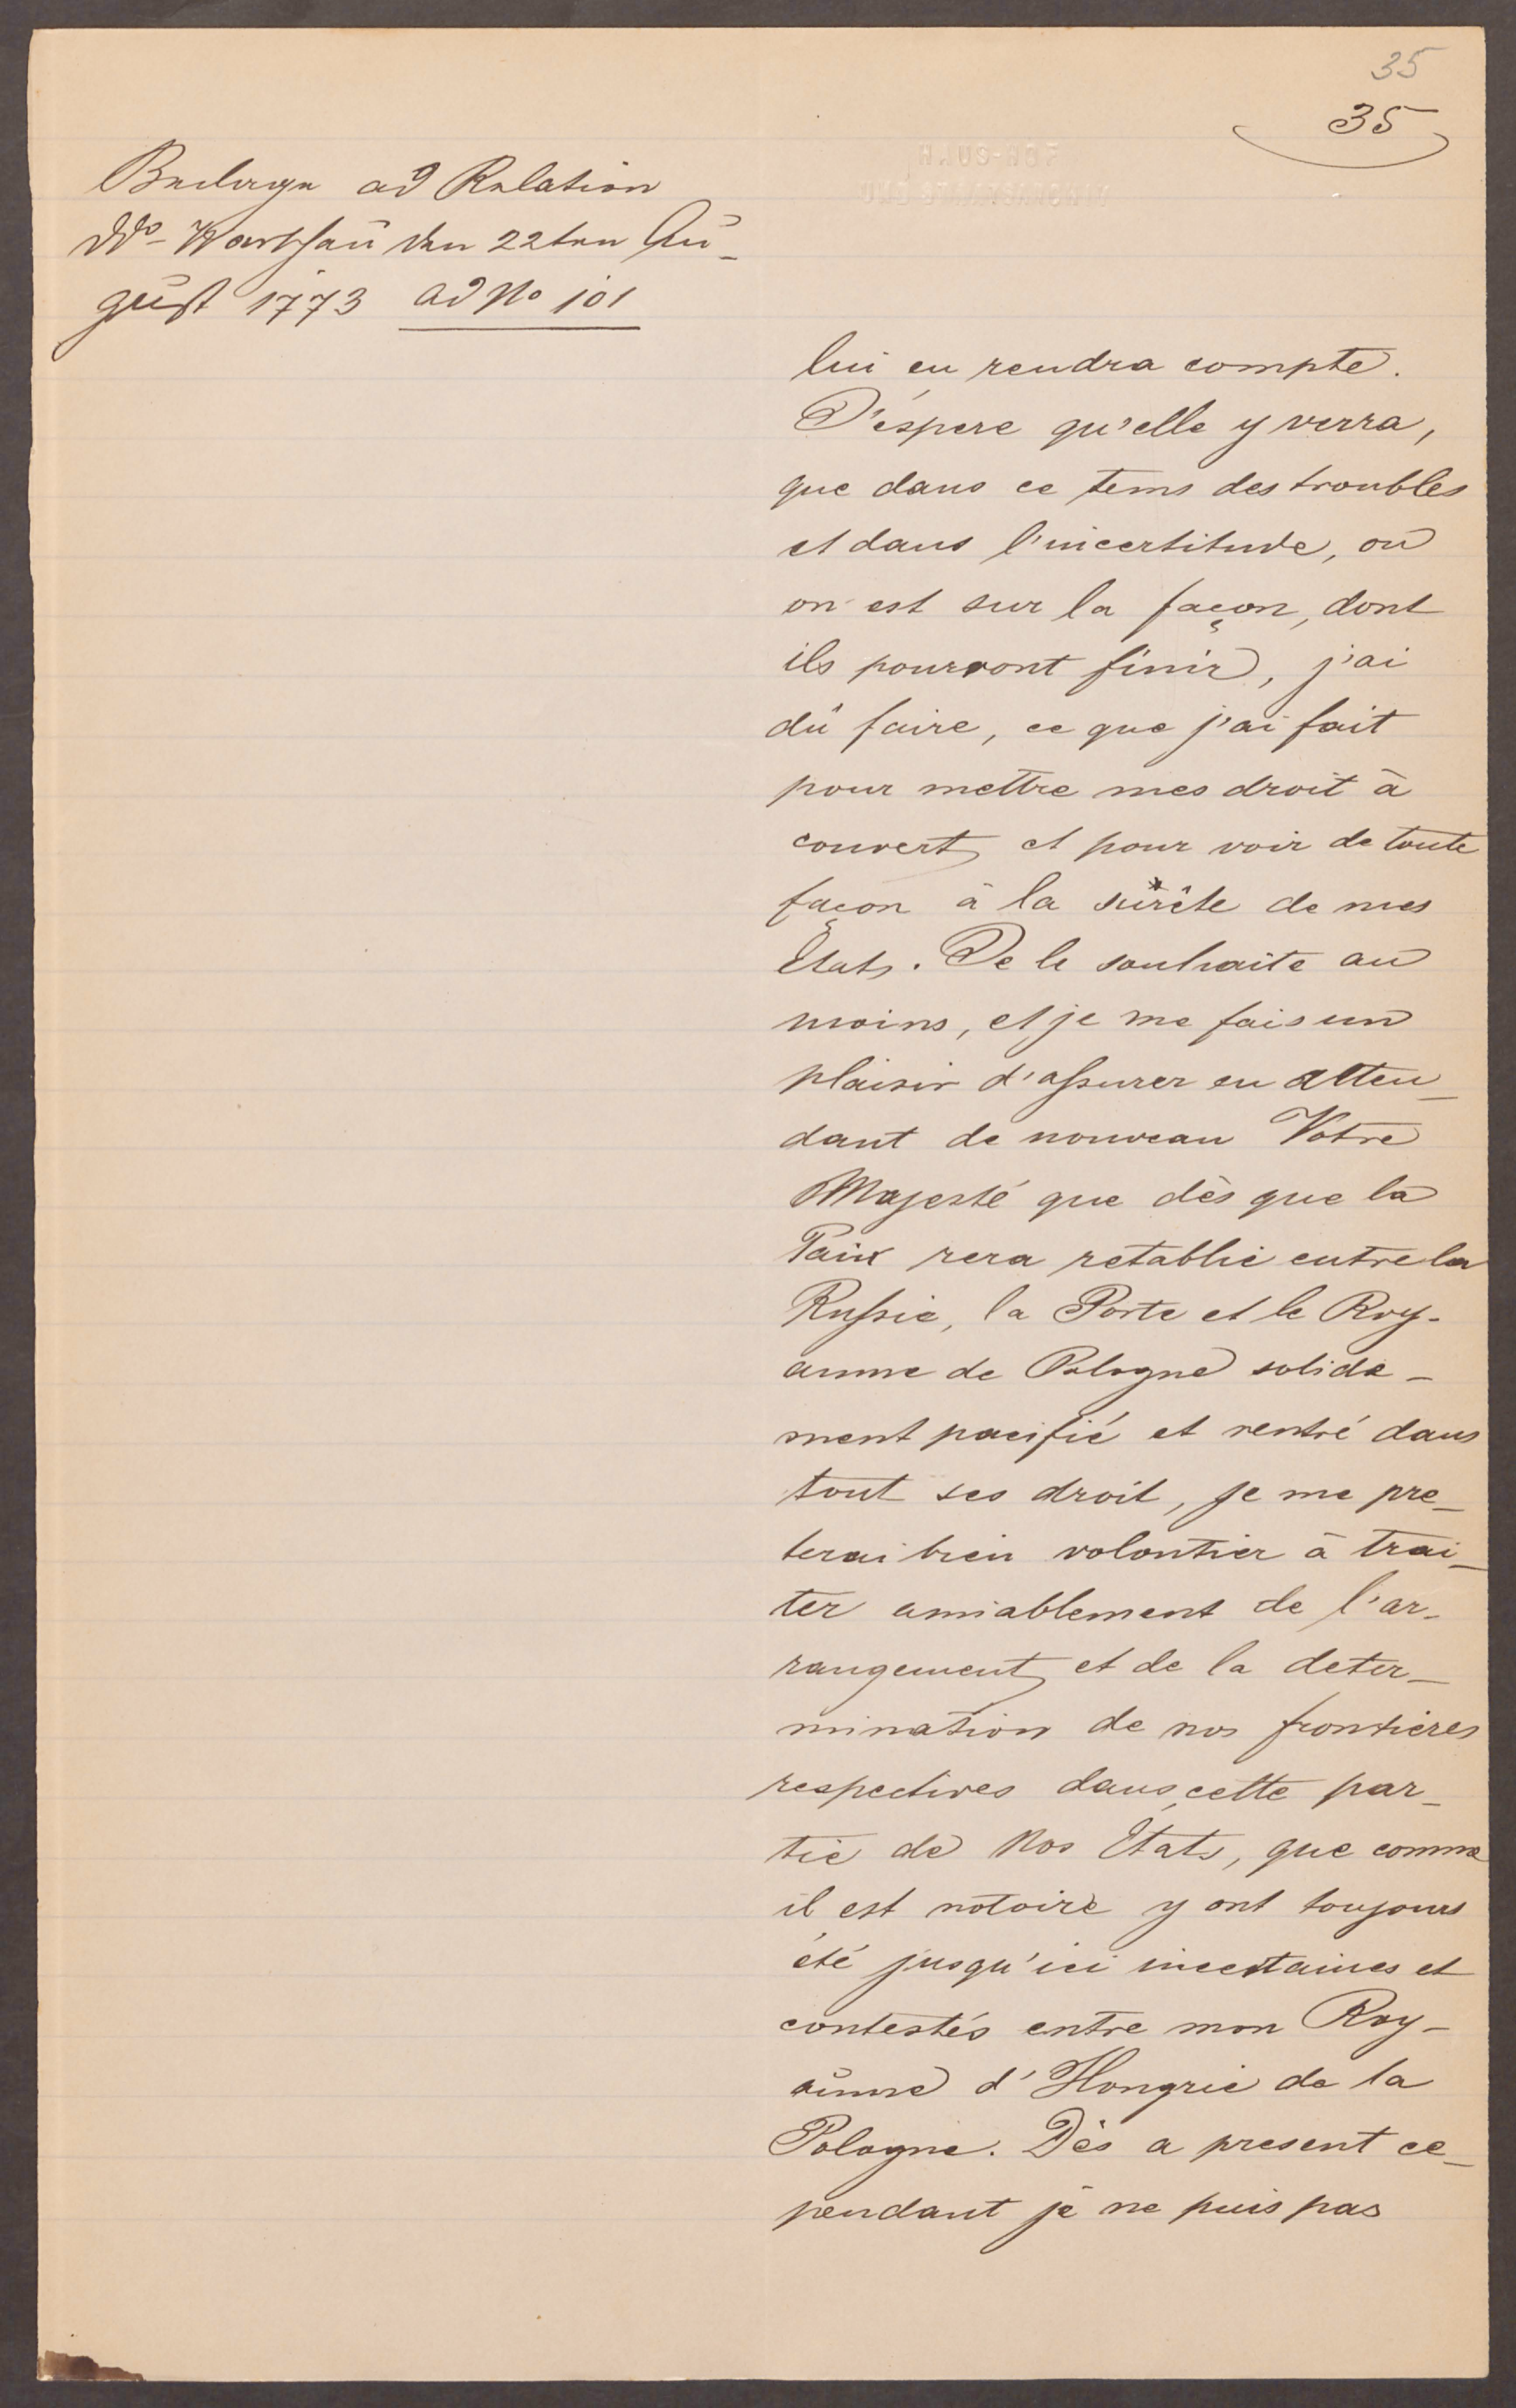 35
35
Beilage ad Relation
Ddo Warschau den 22ten Au-
gust 1773 ad No 101
lui en rendra compte.
J'éspere qu'elle y verra,
que dans ce tems des troubles
et dans l'incertitude, où
on est sur la façon, dont
ils pourront finir, j'ai
dû faire, ce que j'ai fait
pour mettre mes droit à
couvert et pour voir de toute
façon à la sûrête de mes
Etats. Je le souhaite au
moins, et je me fais un
plaisir d'assurer en atten-
dant de nouveau Votre
Majesté que dès que la
Paix sera retablie entre la
Russie, la Porte et le Roy-
aume de Pologne solide-
ment pacifié et rentré dans
tout ses droit, je me pre-
terai bien volontier à trai-
ter amiablement de l'ar-
rangement et de la deter-
mination de nos frontières
respectives dans cette par-
tie de Nos Etats, que comme
il est notoire y ont toujours
été jusqu'ici incertaines et
contestés entre mon Roy-
aume d'Hongrie de la
Pologne. Dès a present ce-
pendant je ne puis pas